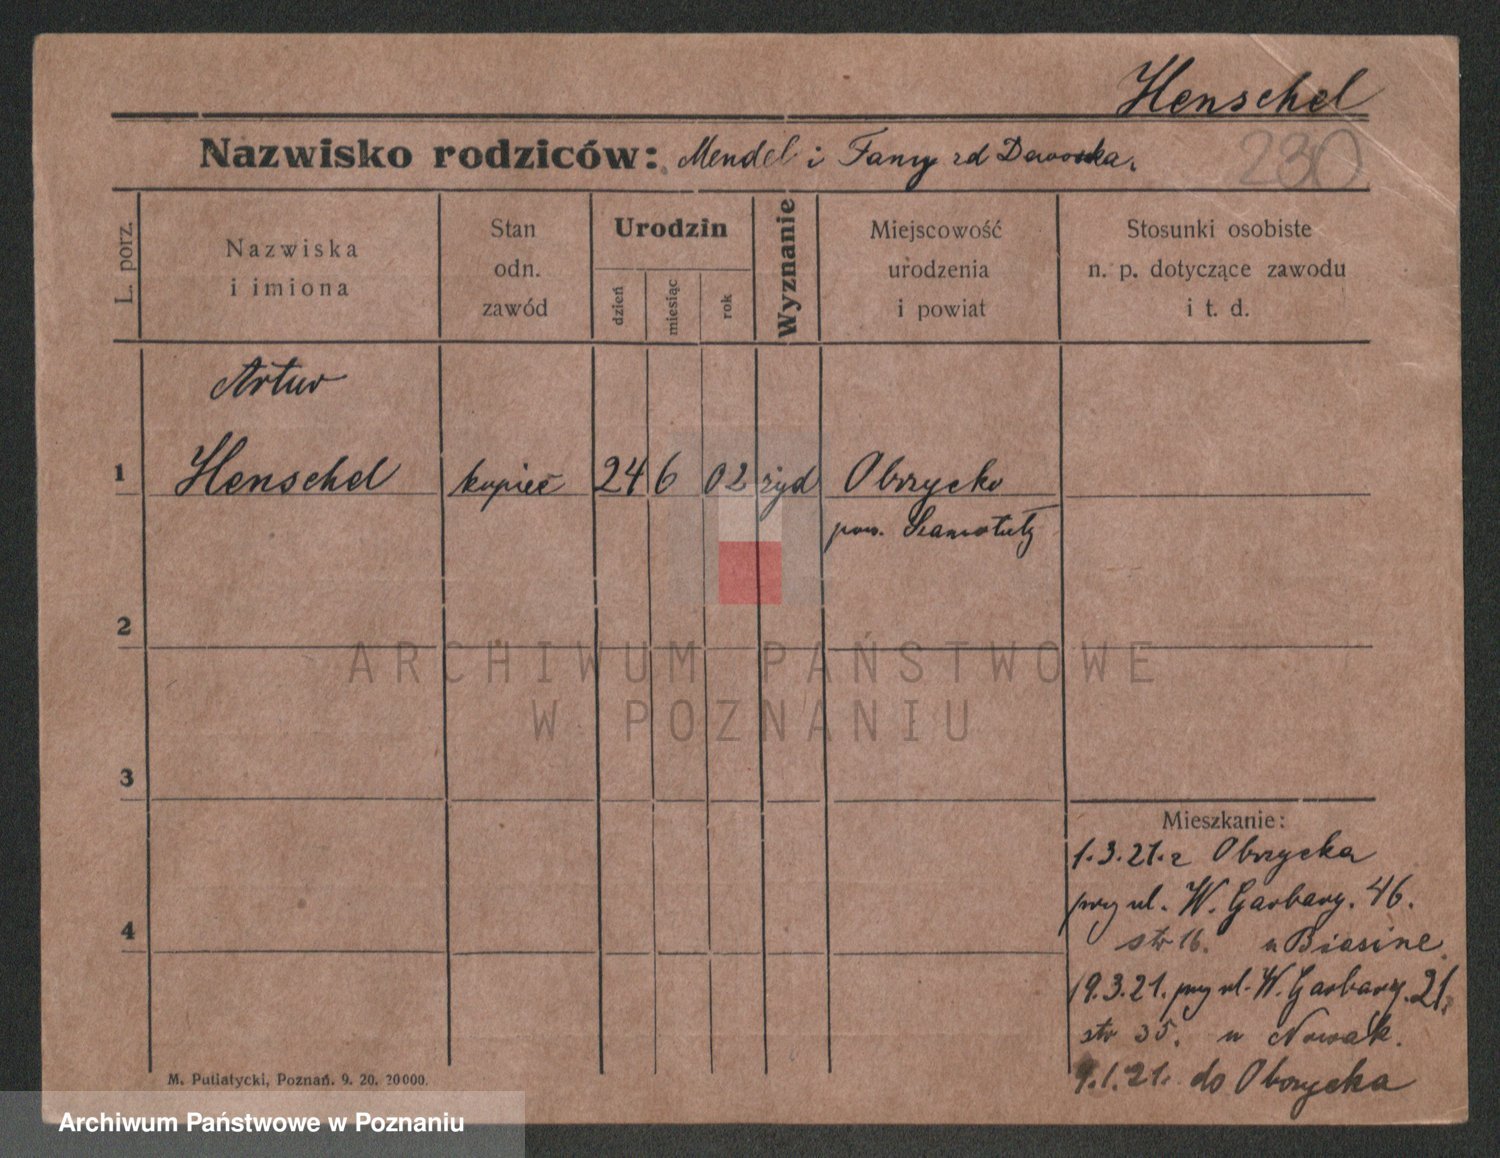 Henschel
Nazwisko rodziców: Mendel i Fany zd
230
L. porz.
Nazwiska
i imiona
Stan
odn.
zawód
Urodzin
dzień
miesiąc
rok
Wyznanie
Miejscowość
urodzenia
i powiat
Stosunki osobiste
n. p. dotyczące zawodu
i t. d.
Artur
1 Henschel kupiec 24 6 02 żyd Obrzycko
pow. Szamotuły
2
ARCHIWUM PAŃSTWOWE
W POZNANIU
3
Mieszkanie:
1.3.21. z Obrzycka
przy ul. W. Garbary. 46.
4
str 16. u Biasine.
19.3.21. przy ul. W. Garbary. 21.
str 35. u Nowak.
9.1.21. do Obrzycka
M. Putiatycki, Poznań. 9. 20. 20000.
Archiwum Państwowe w Poznaniu